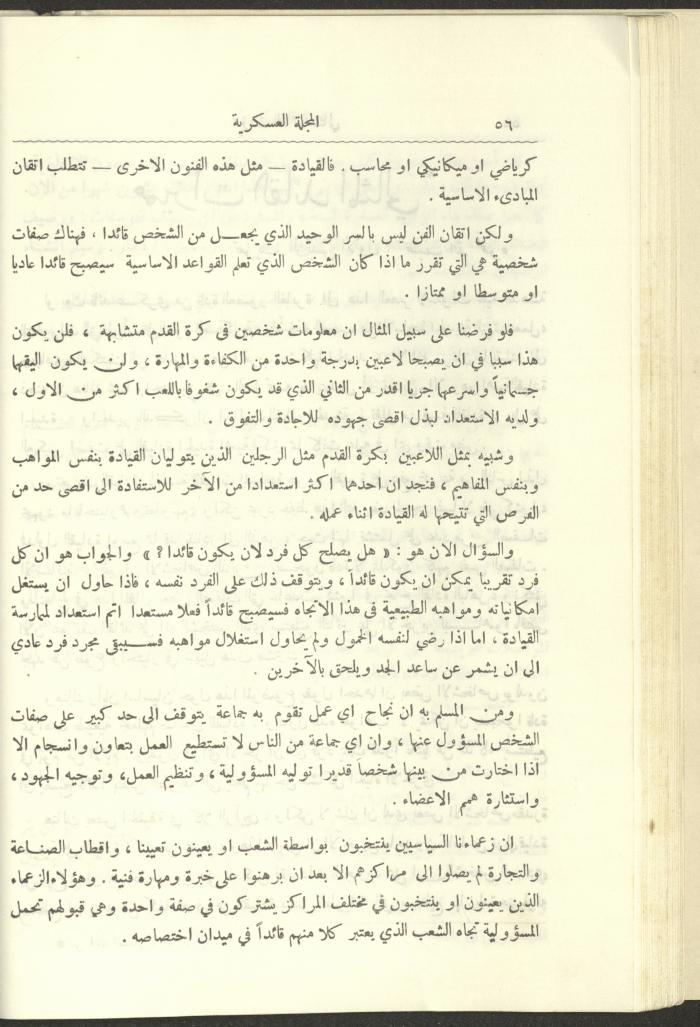 ٥٦
المجلة العسكرية
كرياضي او ميكانيكي او محاسب . فالقيادة — مثل هذه الفنون الاخرى — تتطلب اتقان
المبادىء الاساسية .
ولكن اتقان الفن ليس بالسر الوحيد الذي يجعل من الشخص قائدا ، فهناك صفات
شخصية هي التي تقرر ما اذا كان الشخص الذي تعلم القواعد الاساسية سيصبح قائدا عاديا
او متوسطا او ممتازا .
فلو فرضنا على سبيل المثال ان معلومات شخصين فى كرة القدم متشابهة ، فلن يكون
هذا سببا في ان يصبحا لاعبين بدرجة واحدة من الكفاءة والمهارة ، ولن يكون اليقهما
جسمانياً واسرعهما جريا اقدر من الثاني الذي قد يكون شغوفا باللعب اكثر من الاول ،
ولديه الاستعداد لبذل اقصى جهوده للاجادة والتفوق .
وشبيه بمثل اللاعبين بكرة القدم مثل الرجلين الذين يتوليان القيادة بنفس المواهب
وبنفس المفاهيم ، فنجد ان احدهما اكثر استعدادا من الآخر للاستفادة الى اقصى حد من
الفرص التي تتيحها له القيادة اثناء عمله .
والسؤال الان هو : « هل يصلح كل فرد لان يكون قائدا ? » والجواب هو ان كل
فرد تقريبا يمكن ان يكون قائداً ، ويتوقف ذلك على الفرد نفسه ، فاذا حاول ان يستغل
امكانياته ومواهبه الطبيعية فى هذا الاتجاه فسيصبح قائداً فعلا مستعدا اتم استعداد لممارسة
القيادة ، اما اذا رضي لنفسه الخمول ولم يحاول استغلال مواهبه فسيبقى مجرد فرد عادي
الى ان يشمر عن ساعد الجد ويلحق بالآخرين .
ومن المسلم به ان نجاح اي عمل تقوم به جماعة يتوقف الى حد كبير على صفات
الشخص المسؤول عنها ، وان اي جماعة من الناس لا تستطيع العمل بتعاون وانسجام الا
اذا اختارت من بينها شخصاً قديرا توليه المسؤولية ، وتنظيم العمل، وتوجيه الجهود ،
واستثارة همم الاعضاء .
ان زعماءنا السياسيين ينتخبون بواسطة الشعب او يعينون تعيينا ، واقطاب الصناعة
والتجارة لم يصلوا الى مراكزهم الا بعد ان برهنوا على خبرة ومهارة فنية . وهؤلاء الزعماء
الذين يعينون او ينتخبون في مختلف المراكز يشتركون في صفة واحدة وهي قبولهم تحمل
المسؤولية تجاه الشعب الذي يعتبر كلا منهم قائداً في ميدان اختصاصه .